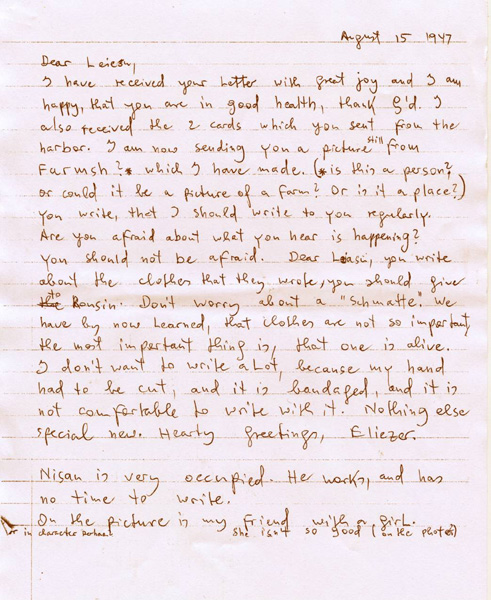 August 15 1947
Dear Leizer,
I have received your letter with great joy and I am
happy, that you are in good health, thank G'd. I
also received the 2 cards which you sent from the
harbor. I am now sending you a picture still from
Farmsh?* which I have made. (*is this a person?
or could it be a picture of a farm? Or is it a place?)
You write, that I should write to you regularly.
Are you afraid about what you hear is happening?
You should not be afraid. Dear you write
about the clothes that they wrote, you should give
to Don't worry about a "Schmatte". We
have by now learned, that clothes are not so important,
the most important thing is, that one is alive.
I don't want to write a Lot, because my hand
had to be cut, and it is bandaged, and it is
not comfortable to write with it. Nothing else
special new. Hearty greetings, Eliezer.
Nisan is very occupied. He works, and has
no time to write.
On the picture is my friend with a girl.
or in character perhaps She isn't so good (on the photo)